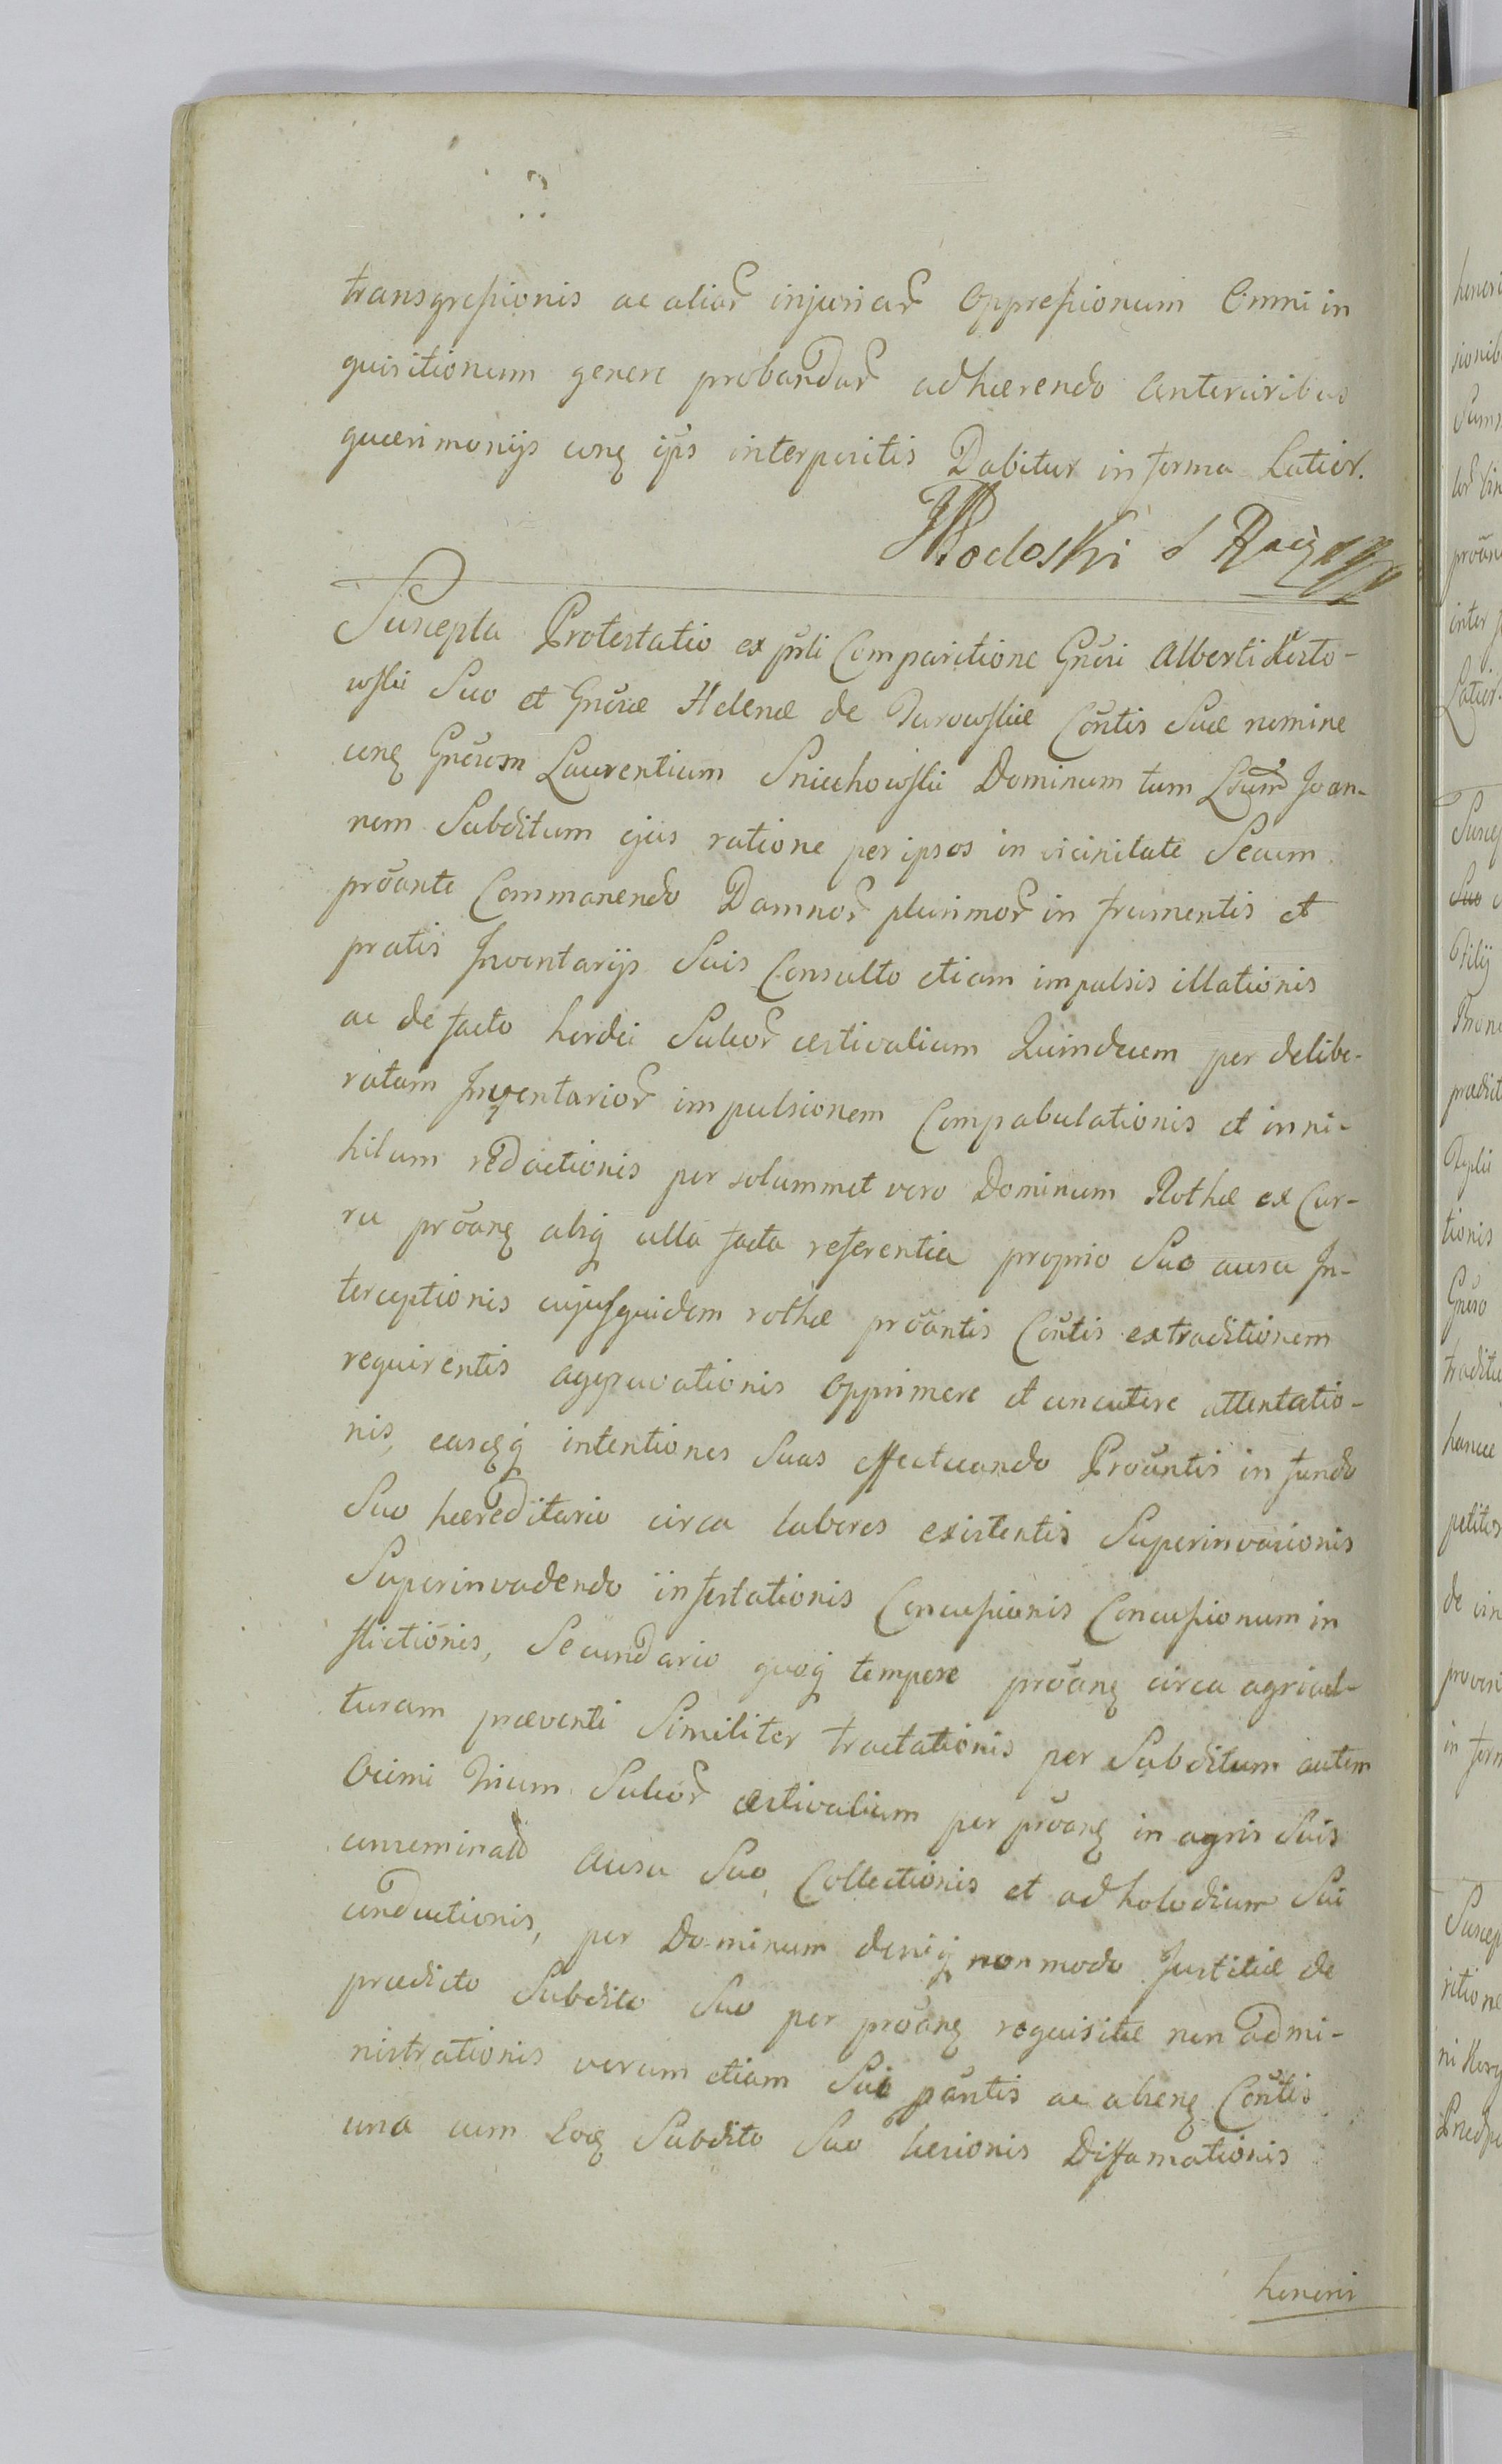 transgressionis ac aliar injuriar Oppressionum Omni in
quisitionum genere probandar adhaerendo Anterioribus
quaerimonijs conq ijs interpositis Dabitur in forma Latior.
Suscepta Protestatio ex pnli Comparitione Gnosi Alberti
wski Suo et Gnosae Helenae de Turowskie Contis Suae nomine
conq Gnosum Laurentium Sniechowski Dominum tum Joan-
nem Subditum ejus ratione per ipsos in vicinitate Secum
proante Commanendo Damnor plurimor in frumentis et
pratis Inventarijs Suis Consulto etiam impulsis illationis
ac de facto hordei Sulcor aestivalium Quindecem per delibe-
ratam Inventarior impulsionem Compabulationis et in ni-
hilum redactionis per solummet vero Dominum Rothae ex Cur-
ru proanq absq ulla facta referentia proprio Suo ausu In-
terceptionis cujusquidem rothae proantis Contis extraditionem
requirentis aggravationis Opprimere et concutere attentatio-
nis, easq intentiones Suas effectuando Proantis in fundo
Suo haereditario circa labores existentis Superinvasionis
Superinvadendo infestationis Concussionis Concussionum in
flictionis, Secundario quoq tempore proanq circa agricul-
turam praeventi Similiter tractationis per Subditum autem
Ocimi trium Sulcor aestivalium per proanq in agris Suis
conseminator Ausu Suo Collectionis et ad holodium Sui
conductionis, per Dominum deniq non modo Justitiae de
praedicto Subdito Suo per proanq requisitae non admi-
nistrationis verum etiam Sui pantis ac absenq Contis
una cum Subdito Suo laesionis Diffamationis
honoris